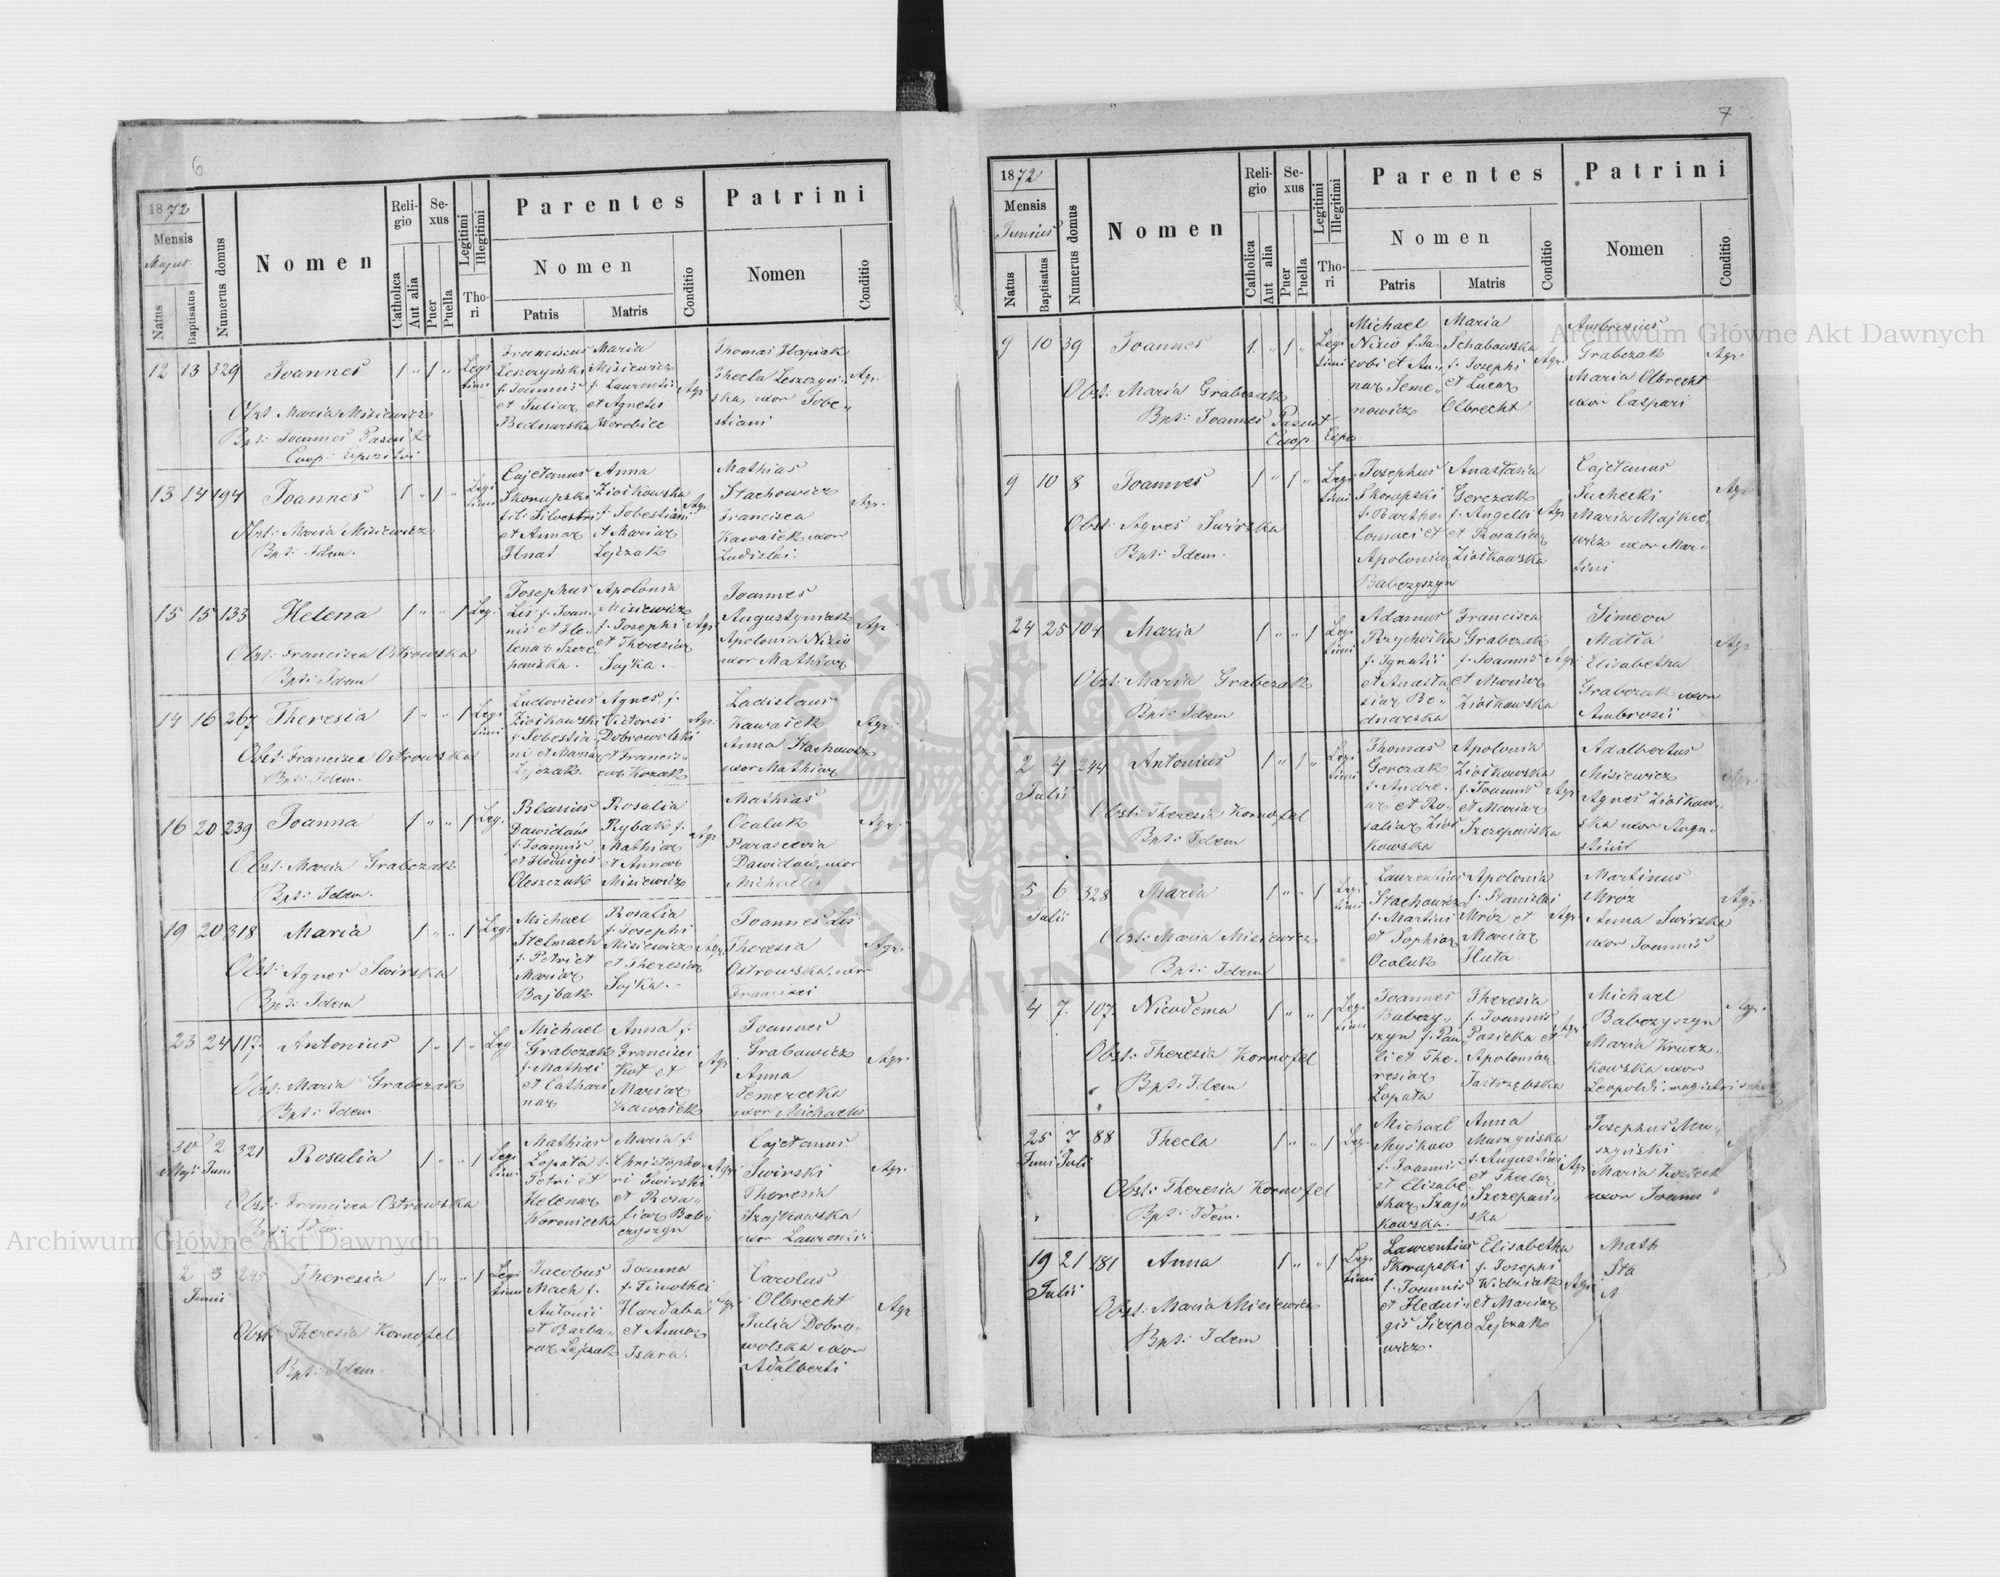 6
1872
Mensis
Majus
Natus
Baptisatus
Numerus domus
Nomen
Religio
Catholica
Aut alia
Sexus
Puer
Puella
Legitimi
Illegitimi
Thori
Parentes
Nomen
Patris
Matris
Conditio
Patrini
Nomen
Conditio
12 13 329 Joannes 1 " 1 " Legitimi
Obst. Maria Misiewicz
Bpt: Joannes Pasiut
Coop: Expositi
Franciscus
Leszczyński
f. Joannis
et Juliae
Bednarska
Maria
Misiewicz
f. Laurentii
et Agnetis
Worobiec
Agr.
Thomas Hapiak
Thecla Leszczyń-
ska, uxor Sobe-
stiani
Agr.
13 14 194 Joannes 1 " 1 " Legitimi
Obst: Maria Misiewicz
Bpt: Idem.
Cajetanus
Skorupski
fil: Silvestri
et Annae
Hnat
Anna
Ziołkowska
f. Sobestiani
et Mariae
Lejczak
Agr.
Mathias
Stachowicz
Francisca
Kawałek uxor
Ladislai.
Agr.
15 15 133 Helena 1 " " 1 Leg.
Obst: Francisca Ostrowska
Bpt: Idem
Josephus
Lis f. Joan-
nis et He-
lenae Szcze
pańska.
Apolonia
Misiewicz
f. Josephi
et Theresiae
Sojka.
Agr.
Joannes
Augustyniak
Apolonia Nizio
uxor Mathiae
Agr.
14 16 267 Theresia 1 " " 1 Legitimi
Obst: Francisca Ostrowska
Bpt: Idem.
Ludovicus
Ziołkowski
f. Sobestia-
ni et Mariae
Lejczak.
Agnes f.
Victoris
Dobrowolski
et Francis-
cae Kozak
Agr.
Ladislaus
Kawałek
Anna Stachowicz
uxor Mathiae
Agr.
16 20 239 Joanna 1 " " 1 Leg.
Obst: Maria Grabczak
Bpt: Idem.
Blasius
Dawidów
f. Joannis
et Hedvigis
Oleszczuk
Rosalia
Rybak f.
Mathiae
et Annae
Misiewicz
Agr.
Mathias
Ocaluk
Parascevia
Dawidów, uxor
Michaelis
Agr.
19 20 318 Maria 1 " " 1 Leg:
Obst: Agnes Swirska
Bpt: Idem
Michael
Stelmach
f. Petri et
Mariae
Bajbak
Rosalia
f. Josephi
Misiewicz
et Theresiae
Sojka.
Agr.
Joannes Lis
Theresia
Ostrowska, uxor
Francisci
Agr.
23 24 117. Antonius 1 " 1 " Leg.
Obst: Maria Grabczak
Bpt: Idem.
Michael
Grabczak
f. Mathei
et Cathari
nae
Anna f.
Francisci
Kot et
Mariae
Kawałek
Agr
Joannes
Grabowicz
Anna
Semerecka
uxor Michaelis
Agr.
30 Maji 2 Juni 321 Rosalia 1 " " 1 Legitimi
Obst: Francisca Ostrowska
Bpt: Idem.
Mathias
Lopata f.
Petri et
Helenae
Woroniecka
Maria f.
Christopho-
ri Swirski
et Rosa-
liae Bab-
czyszyn
Agr
Cajetanus
Swirski
Theresia
Szajkowska
uxor Laurentii
Agr.
2 3 Junii 245 Theresia 1 " " 1 Legitimi
Obst: Theresia Kornofel
Bpt: Idem.
Jacobus
Mach f.
Antonii
et Barba-
rae Lejczak
Joanna
f. Timothei
Hardaba
et Annae
Iskra.
Agr
Carolus
Olbrecht
Julia Dobro-
wolska uxor
Adalberti
Agr
7
1872
Mensis
Junius
Natus
Baptisatus
Numerus domus
Nomen
Religio
Catholica
Aut alia
Sexus
Puer
Puella
Legitimi
Illegitimi
Thori
Parentes
Nomen
Patris
Matris
Conditio
Patrini
Nomen
Conditio
9 10 39 Joannes 1. " 1 " Legitimi
Obst: Maria Grabczak
Bpt: Joannes Pasiut
Coop Expo
Michael
Nizio f. Ja-
cobi et An-
nae Seme-
nowicz
Maria
Schabowska
f. Josephi
et Lucae
Olbrecht
Agr.
Ambrosius
Grabczak
Maria Olbrecht
uxor Caspari
Agr.
9 10 8 Joannes 1 " 1 " Legitimi
Obst: Agnes Swirska
Bpt: Idem.
Josephus
Skorupski
f. Bartho-
lomaei et
Apoloniae
Babczyszyn
Anastasia
Gerczak
f. Angelli
et Rosaliae
Ziołkowska
Agr
Cajetanus
Suchecki
Maria Majkie-
wicz uxor Mar-
tini
Agr.
24 25 104 Maria 1 " " 1 Legitimi
Obst: Maria Grabczak
Bpt: Idem
Adamus
Przychoika
f. Ignatii
et Anasta-
siae Be-
dnarska
Francisca
Grabczak
f. Joannis
et Mariae
Ziołkowska
Agr.
Simeon
Matla
Elisabetha
Grabczak uxor
Ambrosii
Agr.
2 4 Julii 244 Antonius 1 " 1 " Legitimi
Obst: Theresia Kornofel
Bpt: Idem
Thomas
Gerczak
f. Andre-
ae et Ro-
saliae Zioł
kowska
Apolonia
Ziołkowska
f. Joannis
et Mariae
Szczepańska
Agr
Adalbertus
Misiewicz
Agnes Ziołkow-
ska uxor Augu-
stini
Agr.
5 6 Julii 328 Maria 1 " " 1 Legitimi
Obst: Maria Misiewicz
Bpt: Idem
Laurentius
Stachowicz
f. Martini
et Sophiae
Ocaluk
Apolonia
f. Stanislai
Mróz et
Mariae
Huta.
Agr.
Martinus
Mróz
Anna Swirska
uxor Joannis
Agr.
4 7. 107. Nicodema 1 " " 1 Legitimi
Obst: Theresia Kornofel
Bpt: Idem
Joannes
Babczy-
szyn f. Pau
li et The-
resiae
Lopata
Theresia
f. Joannis
Pasicka et
Apoloniae
Jastrzębska
Agr
Michael
Babczyszyn
Maria Krucz-
kowska uxor
Leopoldi magistri
Agr.
25 Juni 7 Juli 88 Thecla 1 " " 1 Leg.
Obst: Theresia Kornofel
Bpt: Idem.
Michael
Myśkow
f. Joannis
et Elisabe
thae Szaj-
kowska.
Anna
Muszyńska
f. Augustini
et Theclae
Szczepań-
ska
Agr
Josephus Mu-
szyński
Maria Koziołek
uxor Joanni
19 21 Julii 181 Anna 1 " " 1 Legitimi
Obst: Maria Misiewicz
Bpt: Idem
Lawrentius
Skorupski
f. Joannis
et Hedvi-
gis Sierpo
wicz.
Elisabetha
f. Josephi
Widziak
et Mariae
Lejczak
Agr
Math
Sta
A
Archiwum Główne Akt Dawnych
Archiwum Główne Akt Dawnych
ARCHIWUM GŁÓWNE AKT DAWNYCH